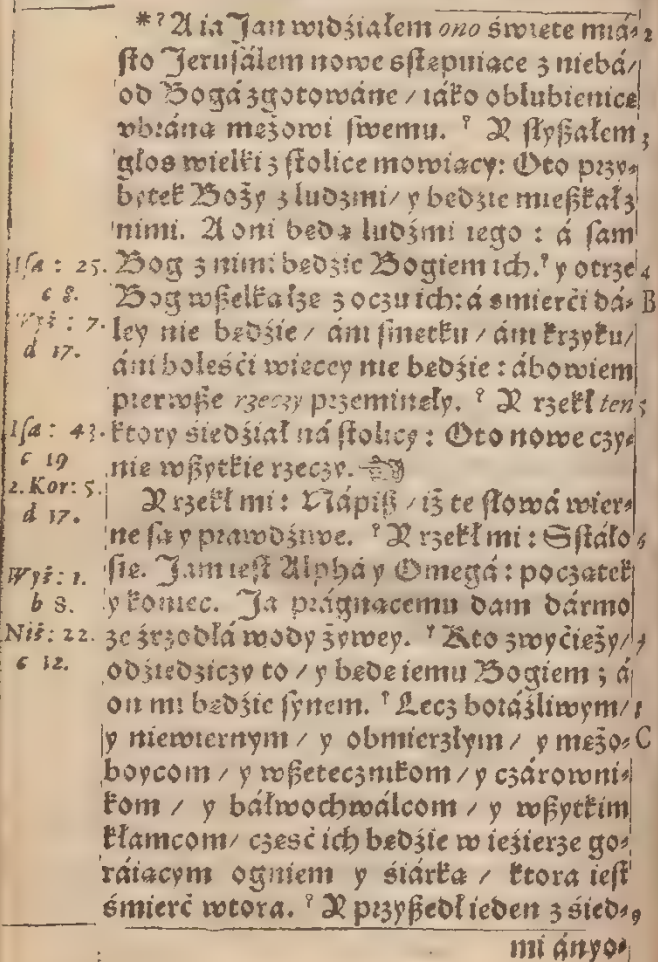 *² A ia Jan widźiałem ono święte miá- 2
sto Jerusálem nowe zstępuiące z niebá/
od Bogá zgotowáne / iáko oblubienicę
vbráną mężowi swemu. ² Y słyszałem 3
głos wielki z stolice mowiący: Oto przy-
bytek Boży z ludźmi/ y będzie mieszkał z
nimi. A oni będą ludźmi iego : á sam
Isa : 25. Bog z nimi będzie Bogiem ich. ² y otrze 4
c 8. Bog wszelką łzę z oczu ich: á śmierći dá- B
Wyż : 7. ley nie będźie / áni smętku / áni krzyku/
d 17. áni boleśći więcey nie będźie : ábowiem
pierwsze rzeczy przeminęły. ² Y rzekł ten 5
Isa : 43. ktory siedźiał ná stolicy : Oto nowe czy-
c 19 nię wszytkie rzeczy.
2. Kor: 5. Y rzekł mi : Nápisz / iż te słowá wier-
d 17. ne są y prawdźiwe. ² Y rzekł mi : Sstáło 6
Wyż: 1. się. Jam iest Alphá y Omegá : początek
b 8. y koniec. Ja prágnącemu dam dármo
Niż: 22. ze źrzodłá wody żywey. ² Kto zwyćięży/ 7
c 12. odźiedźiczy to / y będę iemu Bogiem ; á
on mi będźie synem. ² Lecz boiáźliwym/ 8
y niewiernym / y obmierzłym / y mężo- C
boycom / y wszetecznikom / y czárowni-
kom / y báłwochwálcom / y wszytkim
kłamcom/ część ich będźie w ieźierze go-
ráiącym ogniem y śiárką / ktora iest
śmierć wtora. ² Y przyszedł ieden z śied- 9
mi ányo-